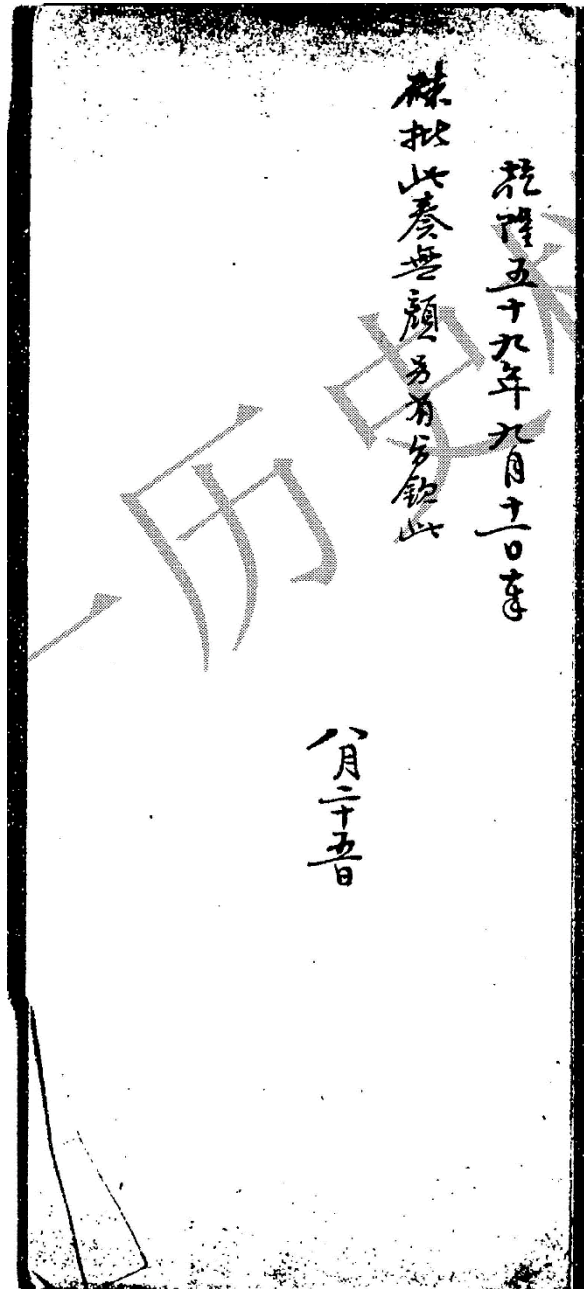 乾隆五十九年九月十一日奉
硃批此奏無顏另有旨欽此
八月二十五日
一历史